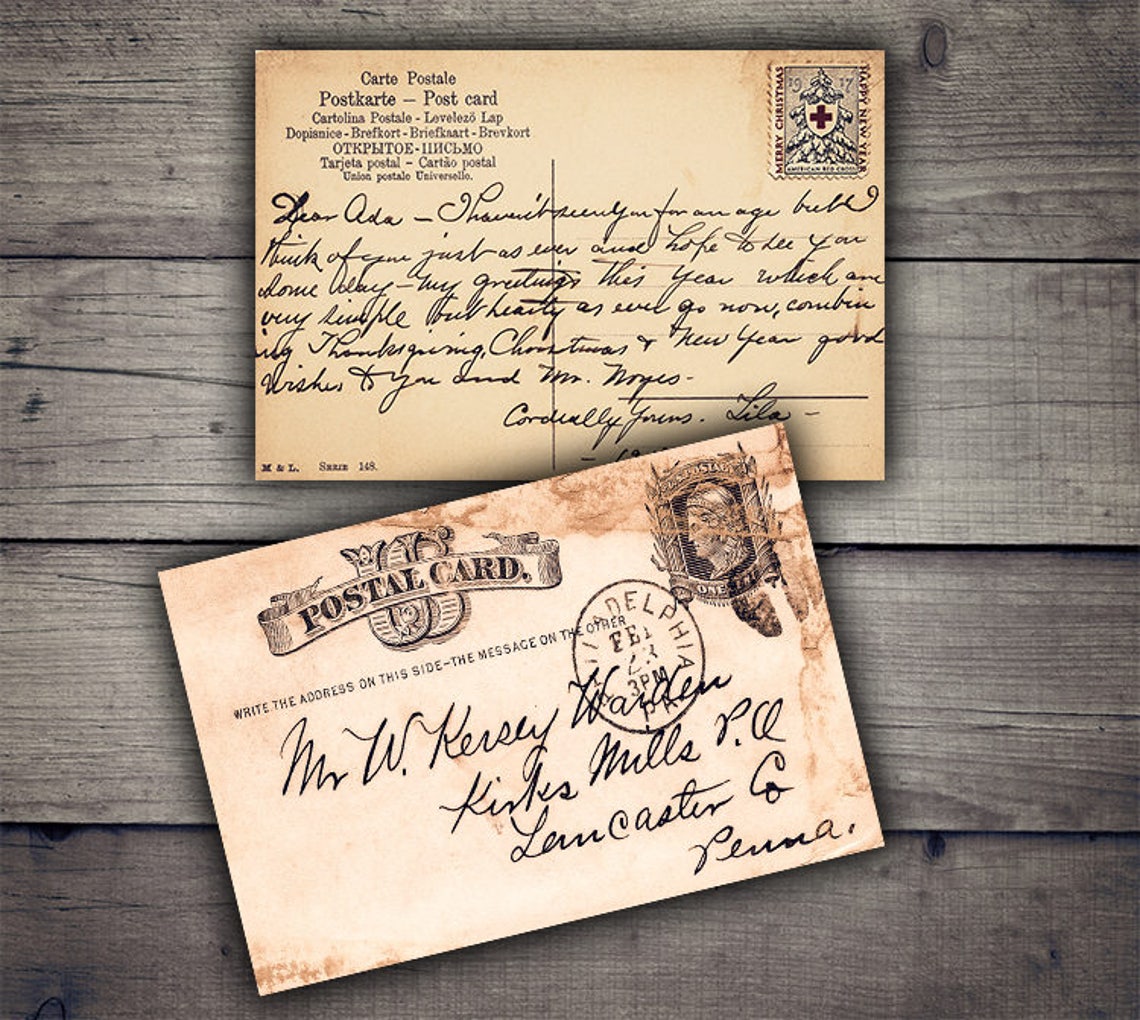 Carte Postale
Postkarte – Post card
Cartolina Postale - Levelező Lap
Dopisnice - Brefkort - Briefkaart - Brevkort
ОТКРЫТОЕ-ПИСЬМО
Tarjeta postal – Cartão postal
Union postale Universelle.
MERRY CHRISTMAS
1917
HAPPY NEW YEAR
AMERICAN RED CROSS
Dear Ada – I haven't seen you for an age but I
think of you just as ever and hope to see you
some day – my greetings this year which are
very simple but hearty as ever go now, combin
ing Thanksgiving, Christmas & New Year good
wishes to you and Mr. Noyes -
Cordially yours. Lila -
M & L. Serie 148.
U.S. POSTAGE
ONE CENT
POSTAL CARD.
WRITE THE ADDRESS ON THIS SIDE–THE MESSAGE ON THE OTHER
PHILADELPHIA
FEB
23
3PM
PA.
Mr W. Kersey Warden
Kirks Mills P.O
Lancaster Co
Penna.